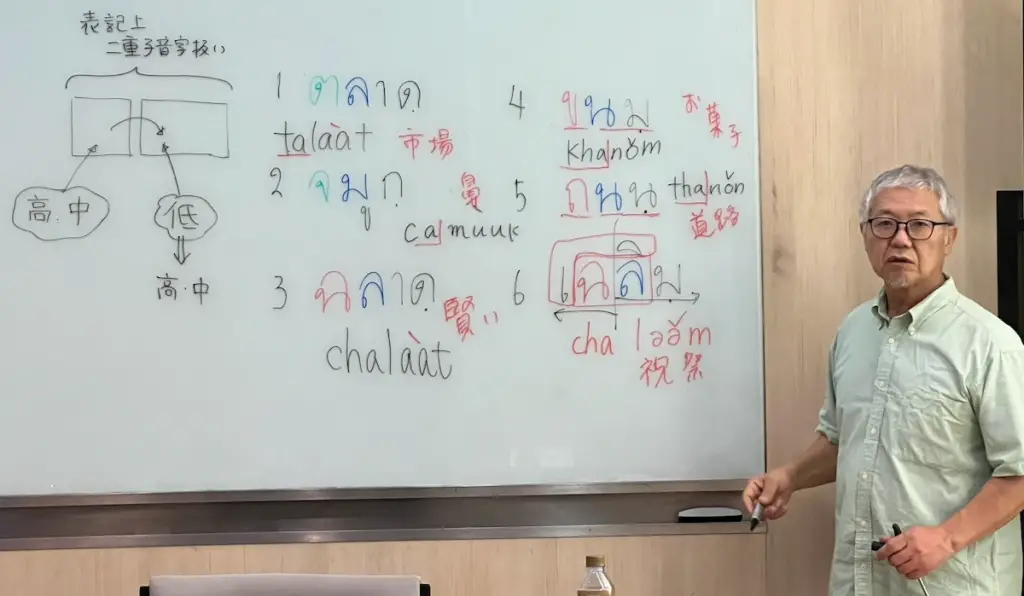 表記上
二重子音字扱い
高・中
低
高・中
1 ตลาด
talàat 市場
2 จมูก 鼻
camuuk
3 ฉลาด 賢い
chalàat
4 ขนม お菓子
khanǒm
5 ถนน thanǒn
道路
6 เฉลิม
cha lə̌əm
祝祭